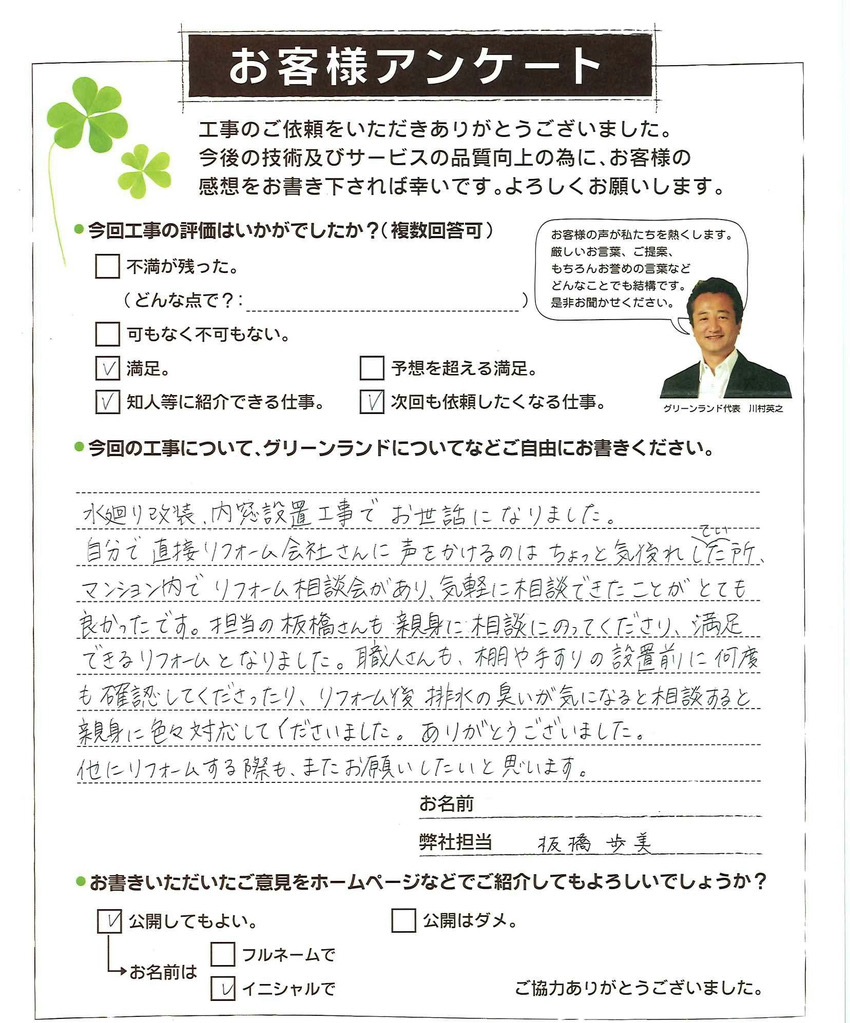 お客様アンケート
工事のご依頼をいただきありがとうございました。
今後の技術及びサービスの品質向上の為に、お客様の
感想をお書き下されば幸いです。よろしくお願いします。
今回工事の評価はいかがでしたか?(複数回答可)
不満が残った。
(どんな点で?: )
可もなく不可もない。
満足。
予想を超える満足。
知人等に紹介できる仕事。
次回も依頼したくなる仕事。
お客様の声が私たちを熱くします。
厳しいお言葉、ご提案、
もちろんお誉めの言葉など
どんなことでも結構です。
是非お聞かせください。
グリーンランド代表 川村英之
今回の工事について、グリーンランドについてなどご自由にお書きください。
水廻り改装、内窓設置工事で お世話になりました。
自分で直接リフォーム会社さんに声をかけるのは ちょっと気後れしてい た所、
マンション内で リフォーム相談会があり、気軽に相談できたことが とても
良かったです。担当の板橋さんも 親身に相談にのってくださり、満足
できるリフォームとなりました。職人さんも、棚や手すりの設置前に何度
も確認してくださったり、リフォーム後 排水の臭いが気になると相談すると
親身に色々対応してくださいました。ありがとうございました。
他にリフォームする際も、またお願いしたいと思います。
お名前
弊社担当 板橋 歩美
お書きいただいたご意見をホームページなどでご紹介してもよろしいでしょうか?
公開してもよい。
公開はダメ。
お名前は
フルネームで
イニシャルで
ご協力ありがとうございました。